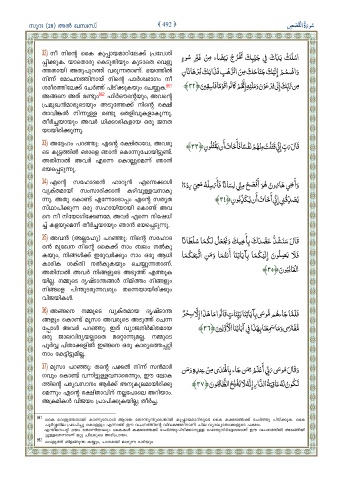 സൂറ: (28) അൽ ഖസസ്
(492)
سُورَةُ الْقَصَصِ
32) നീ നിന്റെ കൈ കുപ്പായമാറിലേക്ക് പ്രവേശി
പ്പിക്കുക. യാതൊരു കെടുതിയും കൂടാതെ വെളു
ത്തതായി അതുപുറത്ത് വരുന്നതാണ്. ഭയത്തിൽ
നിന്ന് മോചനത്തിനായി നിന്റെ പാർശ്വഭാഗം നീ
ശരീരത്തിലേക്ക് ചേർത്ത് പിടിക്കുകയും ചെയ്യുക.
അങ്ങനെ അത് രണ്ടും ഫിർഔന്റെയും, അവന്റെ
പ്രമുഖൻമാരുടെയും അടുത്തേക്ക് നിന്റെ രക്ഷി
താവിങ്കൽ നിന്നുള്ള രണ്ടു തെളിവുകളാകുന്നു.
തീർച്ചയായും അവർ ധിക്കാരികളായ ഒരു ജനത
യായിരിക്കുന്നു.
اسْلُكْ يَدَكَ فِي جَيْبِكَ تَخْرُجْ بَيْضَاءَ مِنْ غَيْرِ سُوءٍ
وَاضْمُمْ إِلَيْكَ جَنَاحَكَ مِنَ الرَّهْبِ فَذَانِكَ بُرْهَانَانِ
مِن رَّبِّكَ إِلَىٰ فِرْعَوْنَ وَمَلَئِهِ إِنَّهُمْ كَانُوا قَوْمًا فَاسِقِينَ ﴿٣٢﴾
33) അദ്ദേഹം പറഞ്ഞു: എന്റെ രക്ഷിതാവേ, അവരു
ടെ കൂട്ടത്തിൽ ഒരാളെ ഞാൻ കൊന്നുപോയിട്ടുണ്ട്.
അതിനാൽ അവർ എന്നെ കൊല്ലുമെന്ന് ഞാൻ
ഭയപ്പെടുന്നു.
قَالَ رَبِّ إِنِّي قَتَلْتُ مِنْهُمْ نَفْسًا فَأَخَافُ أَن يَقْتُلُونِ ﴿٣٣﴾
34) എന്റെ സഹോദരൻ ഹാറൂൻ എന്നെക്കാൾ
വ്യക്തമായി സംസാരിക്കാൻ കഴിവുള്ളവനാകു
ന്നു. അതു കൊണ്ട് എന്നോടൊപ്പം എന്റെ സത്യത
സ്ഥാപിക്കുന്ന ഒരു സഹായിയായി കൊണ്ട് അവ
നെ നീ നിയോഗിക്കേണമേ. അവർ എന്നെ നിഷേധി
ച്ച് കളയുമെന്ന് തീർച്ചയായും ഞാൻ ഭയപ്പെടുന്നു.
وَأَخِي هَارُونُ هُوَ أَفْصَحُ مِنِّي لِسَانًا فَأَرْسِلْهُ مَعِيَ رِدْءًا
يُصَدِّقُنِي إِنِّي أَخَافُ أَن يُكَذِّبُونِ ﴿٣٤﴾
35) അവൻ (അല്ലാഹു) പറഞ്ഞു: നിന്റെ സഹോദ
രൻ മുഖേന നിന്റെ കൈക്ക് നാം ബലം നൽകു
കയും, നിങ്ങൾക്ക് ഇരുവർക്കും നാം ഒരു ആധി
കാരിക ശക്തി നൽകുകയും ചെയ്യുന്നതാണ്.
അതിനാൽ അവർ നിങ്ങളുടെ അടുത്ത് എത്തുക
യില്ല. നമ്മുടെ ദൃഷ്ടാന്തങ്ങൾ നിമിത്തം നിങ്ങളും
നിങ്ങളെ പിന്തുടരുന്നവരും തന്നെയായിരിക്കും
വിജയികൾ.
قَالَ سَنَشُدُّ عَضُدَكَ بِأَخِيكَ وَنَجْعَلُ لَكُمَا سُلْطَانًا
فَلَا يَصِلُونَ إِلَيْكُمَا بِآيَاتِنَا أَنتُمَا وَمَنِ اتَّبَعَكُمَا
الْغَالِبُونَ ﴿٣٥﴾
36) അങ്ങനെ നമ്മുടെ വ്യക്തമായ ദൃഷ്ടാന്ത
ങ്ങളും കൊണ്ട് മൂസാ അവരുടെ അടുത്ത് ചെന്ന
പ്പോൾ അവർ പറഞ്ഞു: ഇത് വ്യാജനിർമിതമായ
ഒരു ജാലവിദ്യയല്ലാതെ മറ്റൊന്നുമല്ല. നമ്മുടെ
പൂർവ്വ പിതാക്കളിൽ ഇങ്ങനെ ഒരു കാര്യത്തെപ്പറ്റി
നാം കേട്ടിട്ടുമില്ല.
فَلَمَّا جَاءَهُم مُّوسَىٰ بِآيَاتِنَا بَيِّنَاتٍ قَالُوا مَا هَٰذَا إِلَّا سِحْرٌ
مُّفْتَرًى وَمَا سَمِعْنَا بِهَٰذَا فِي آبَائِنَا الْأَوَّلِينَ ﴿٣٦﴾
37) മൂസാ പറഞ്ഞു: തന്റെ പക്കൽ നിന്ന് സൻമാർ
ഗവും കൊണ്ട് വന്നിട്ടുള്ളവനാരെന്നും, ഈ ലോക
ത്തിന്റെ പര്യവസാനം ആർക്ക് അനുകൂലമായിരിക്കു
മെന്നും എന്റെ രക്ഷിതാവിന് നല്ലപോലെ അറിയാം.
അക്രമികൾ വിജയം പ്രാപിക്കുകയില്ല; തീർച്ച.
وَقَالَ مُوسَىٰ رَبِّي أَعْلَمُ بِمَن جَاءَ بِالْهُدَىٰ مِنْ عِندِهِ وَمَن
تَكُونُ لَهُ عَاقِبَةُ الدَّارِ إِنَّهُ لَا يُفْلِحُ الظَّالِمُونَ ﴿٣٧﴾